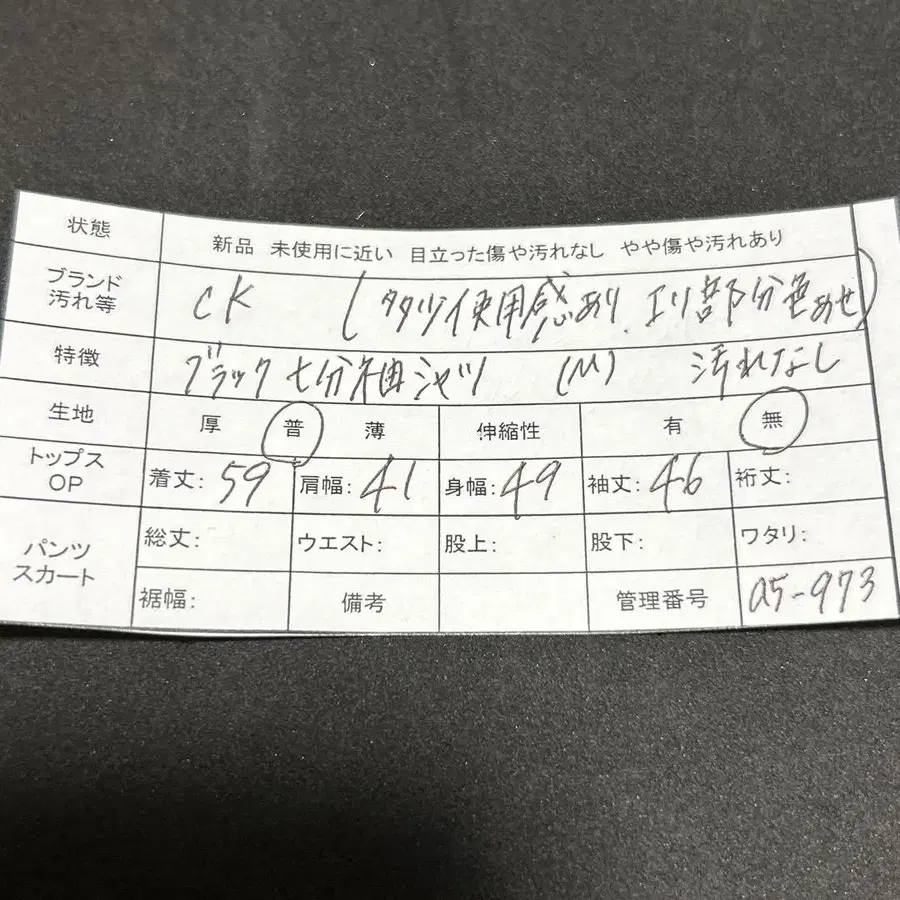 状態 新品 未使用に近い 目立った傷や汚れなし やや傷や汚れあり
ブランド 汚れ等 CK ( 使用感あり、エリ部分色あせ)
特徴 ブラック七分袖シャツ (M) 汚れなし
生地 厚 普 薄 伸縮性 有 無
トップス OP 着丈: 59 肩幅: 41 身幅: 49 袖丈: 46 裄丈:
パンツ スカート 総丈: ウエスト: 股上: 股下: ワタリ:
裾幅: 備考 管理番号 a5-973